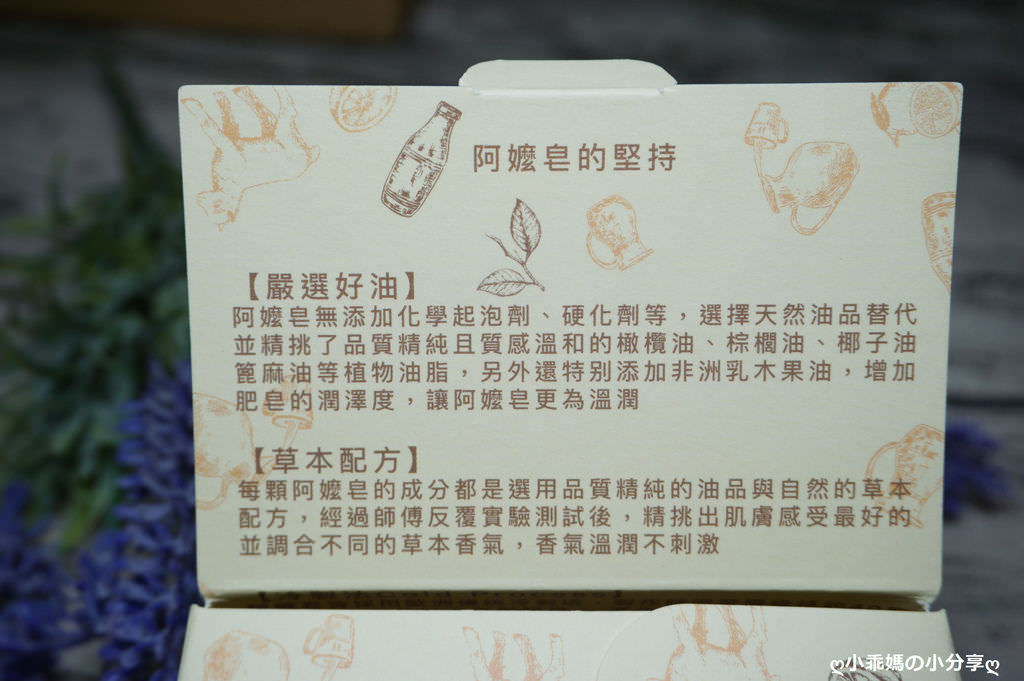 阿嬤皂的堅持
【嚴選好油】
阿嬤皂無添加化學起泡劑、硬化劑等，選擇天然油品替代
並精挑了品質精純且質感溫和的橄欖油、棕櫚油、椰子油
篦麻油等植物油脂，另外還特別添加非洲乳木果油，增加
肥皂的潤澤度，讓阿嬤皂更為溫潤
【草本配方】
每顆阿嬤皂的成分都是選用品質精純的油品與自然的草本
配方，經過師傅反覆實驗測試後，精挑出肌膚感受最好的
並調合不同的草本香氣，香氣溫潤不刺激
ღ小乖媽の小分享ღ